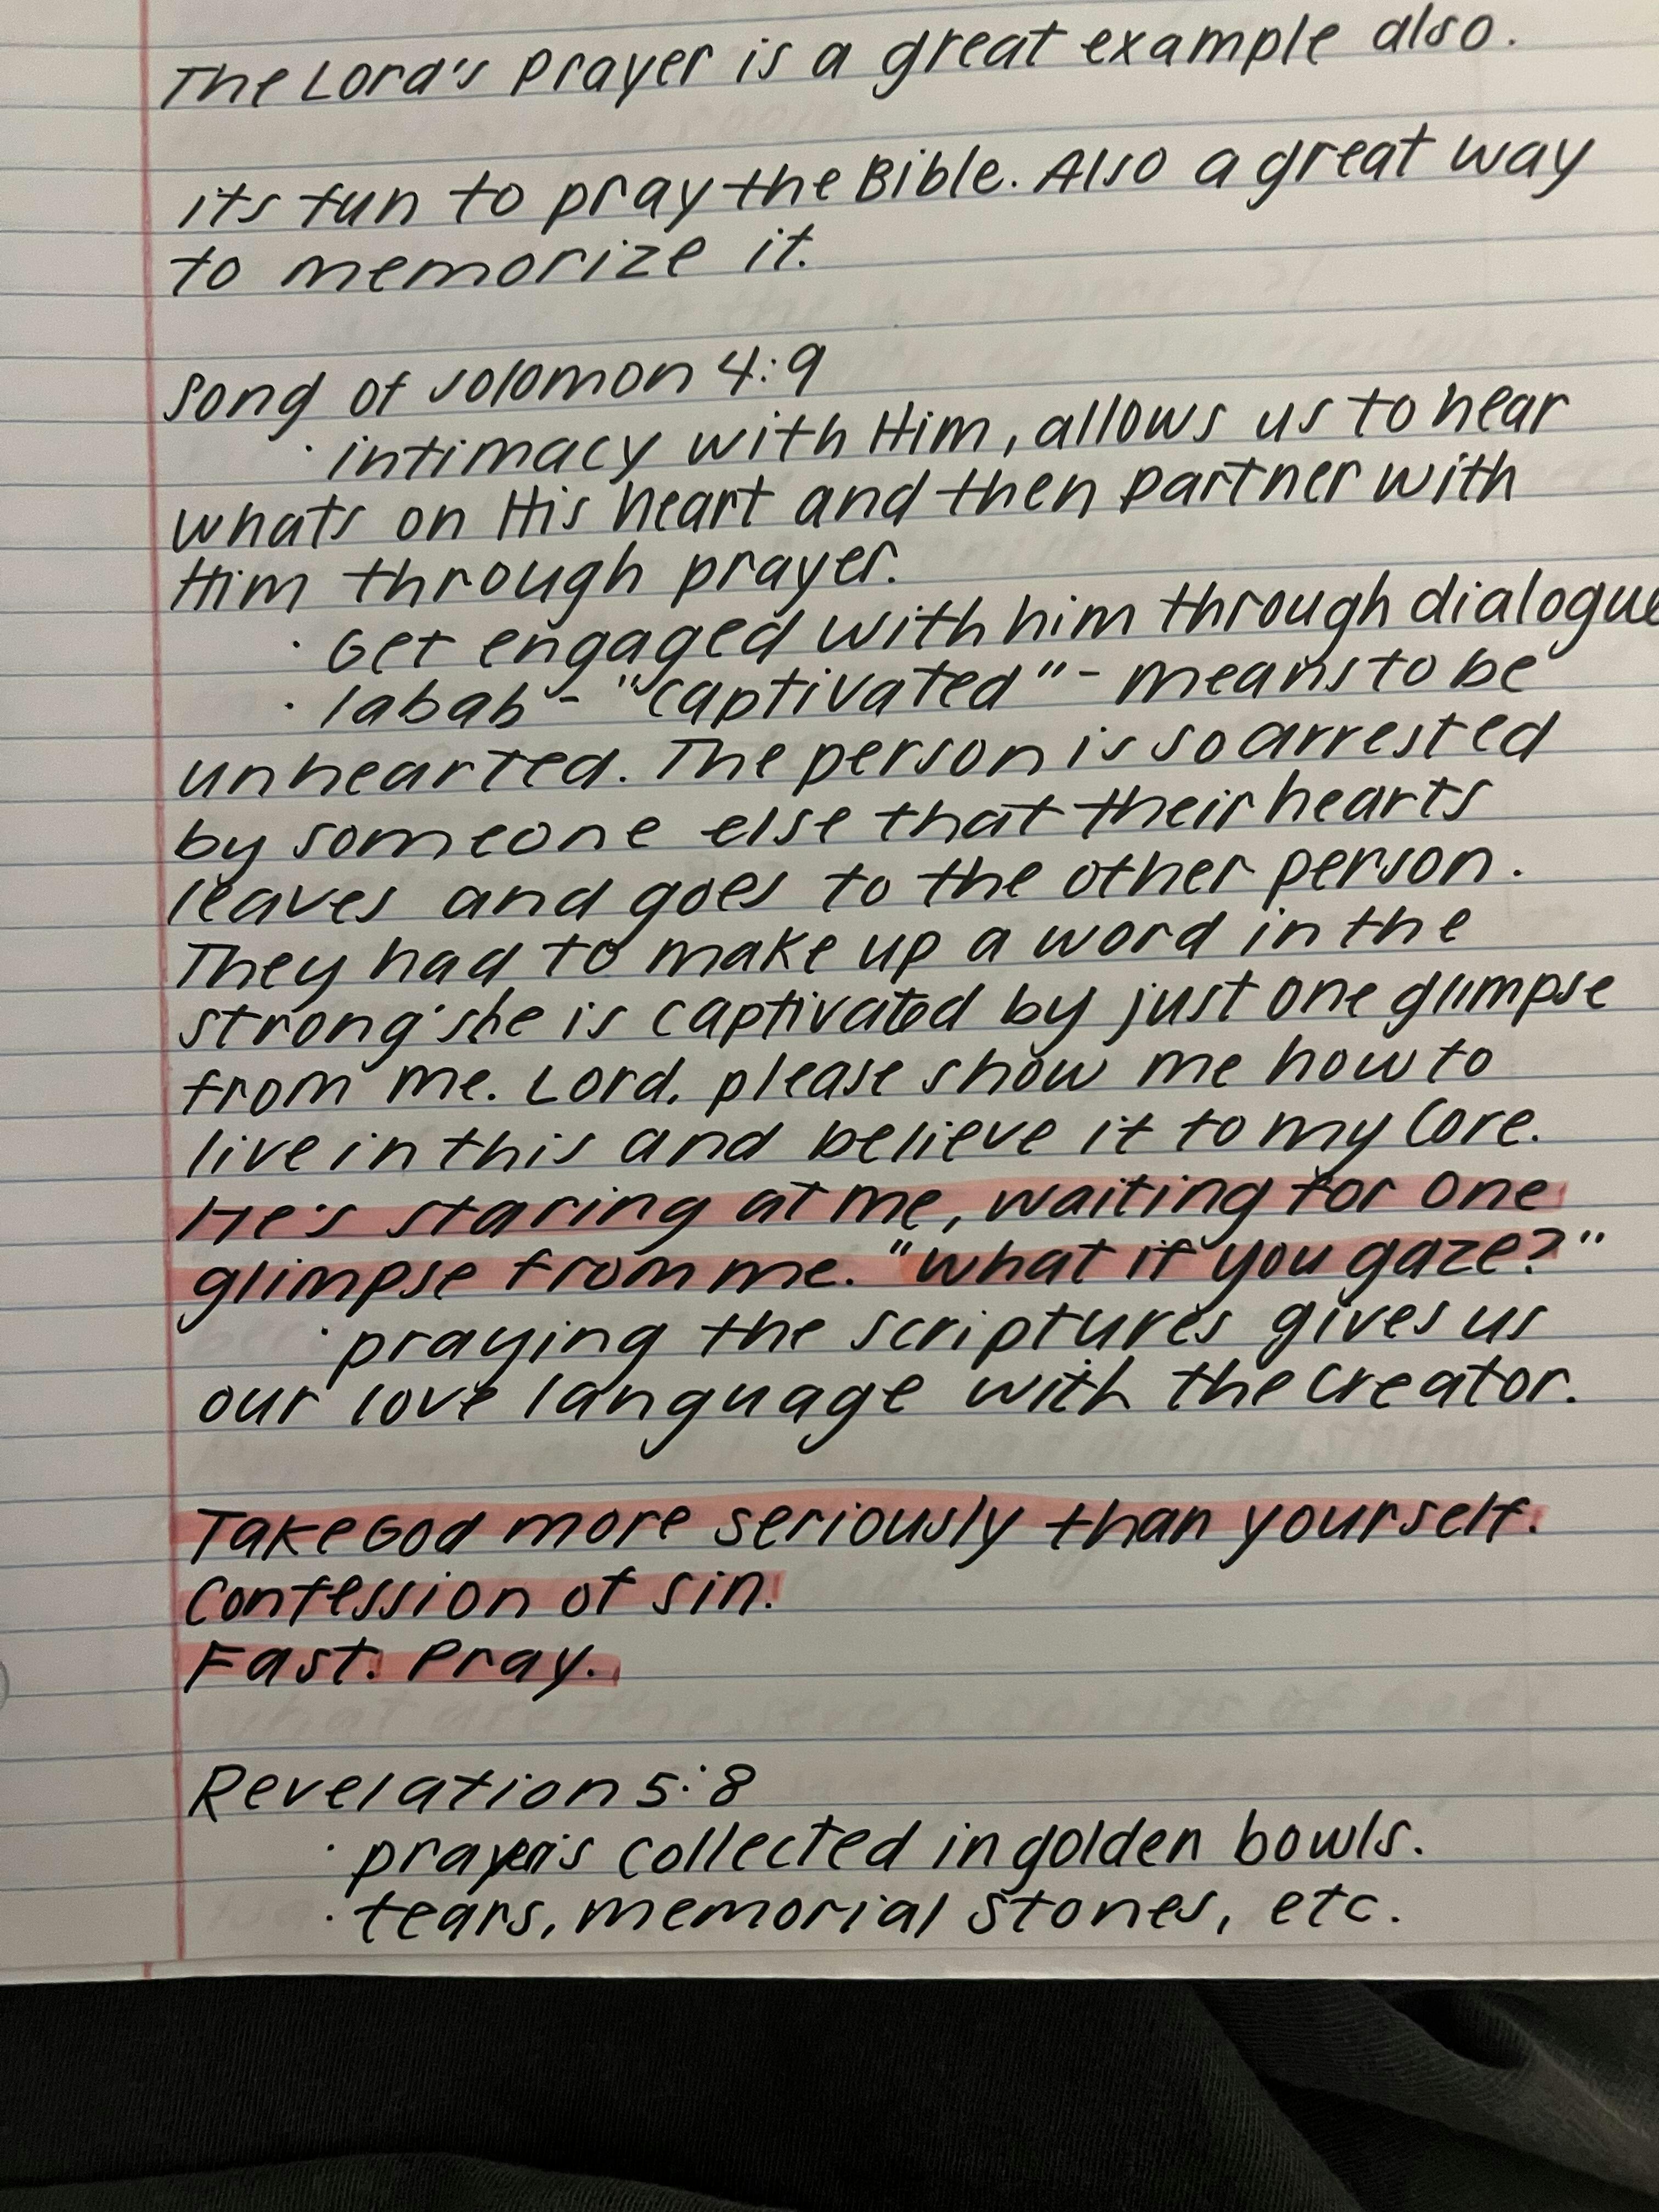 The Lord's prayer is a great example also.
its fun to pray the Bible. Also a great way
to memorize it.
Song of Solomon 4:9
· intimacy with Him, allows us to hear
whats on His heart and then partner with
Him through prayer.
· Get engaged with him through dialogue
· labab - "captivated" - means to be
unhearted. The person is so arrested
by someone else that their hearts
leaves and goes to the other person.
They had to make up a word in the
strong's he is captivated by just one glimpse
from me. Lord, please show me how to
live in this and believe it to my core.
He's staring at me, waiting for one
glimpse from me. "what if you gaze?"
· praying the scriptures gives us
our love language with the creator.
Take God more seriously than yourself.
Confession of sin.
Fast. Pray.
Revelation 5:8
· prayers collected in golden bowls.
· tears, memorial stones, etc.